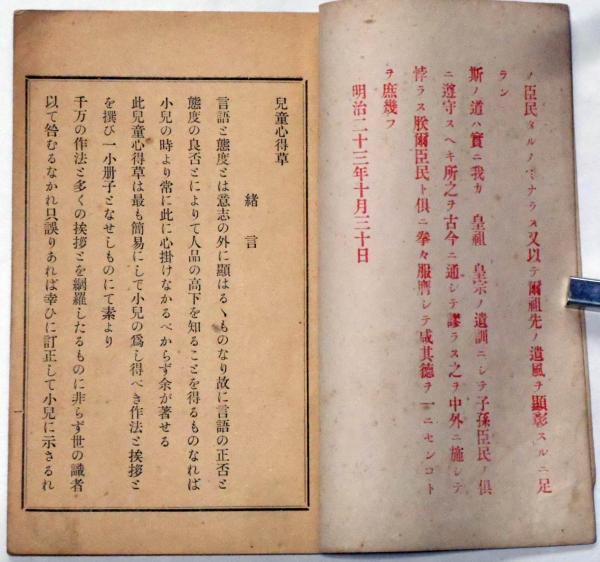 ノ臣民タルノミナラス又以テ爾祖先ノ遺風ヲ顯彰スルニ足
ラン
斯ノ道ハ實ニ我カ 皇祖 皇宗ノ遺訓ニシテ子孫臣民ノ俱
ニ遵守スヘキ所之ヲ古今ニ通シテ謬ラス之ヲ中外ニ施シテ
悖ラス朕爾臣民ト俱ニ拳々服膺シテ咸其德ヲ一ニセンコト
ヲ庶幾フ
明治二十三年十月三十日
兒童心得草
緒言
言語と態度とは意志の外に顯はるゝものなり故に言語の正否と
態度の良否とによりて人品の高下を知ることを得るものなれば
小兒の時より常に此に心掛けなかるべからず余が著せる
此兒童心得草は最も簡易にして小兒の爲し得べき作法と挨拶と
を撰び一小册子となせしものにて素より
千万の作法と多くの挨拶とを網羅したるものに非らず世の識者
以て咎むるなかれ只誤りあれば幸ひに訂正して小兒に示さるれ